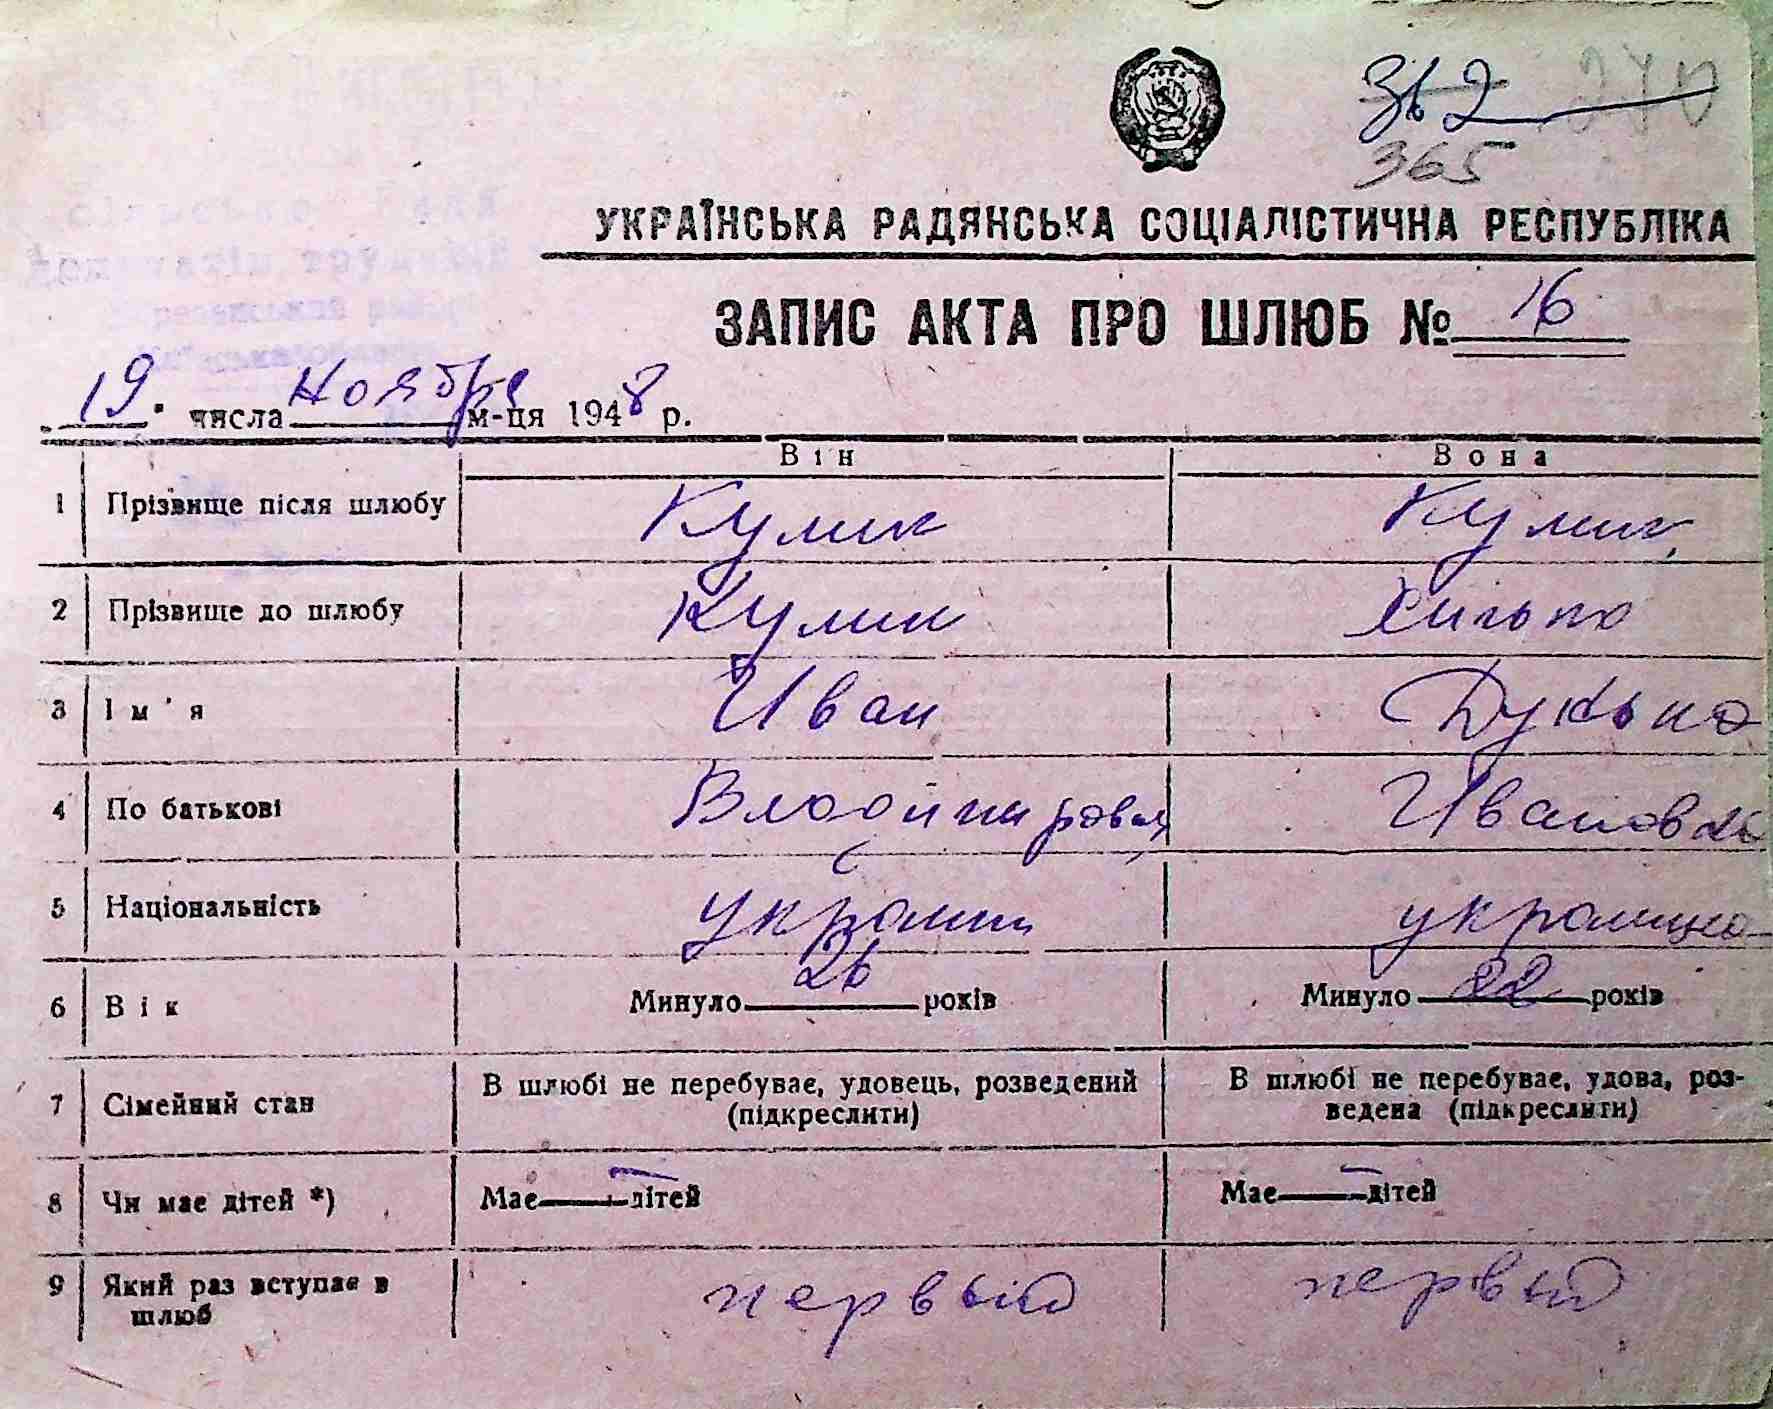 362 270
365
УКРАЇНСЬКА РАДЯНСЬКА СОЦІАЛІСТИЧНА РЕСПУБЛІКА
ЗАПИС АКТА ПРО ШЛЮБ № 16
19 числа Ноября м-ця 1948 р.
Він Вона
1 Прізвище після шлюбу Кулик Кулик
2 Прізвище до шлюбу Кулик
3 Ім'я Иван Дукька
4 По батькові Владимирович Ивановна
5 Національність украинец украинка
6 Вік Минуло 26 років Минуло 22 років
7 Сімейний стан В шлюбі не перебуває, удовець, розведений (підкреслити) В шлюбі не перебуває, удова, роз-
ведена (підкреслити)
8 Чи має дітей *) Має — дітей Має — дітей
9 Який раз вступає в шлюб первый первый